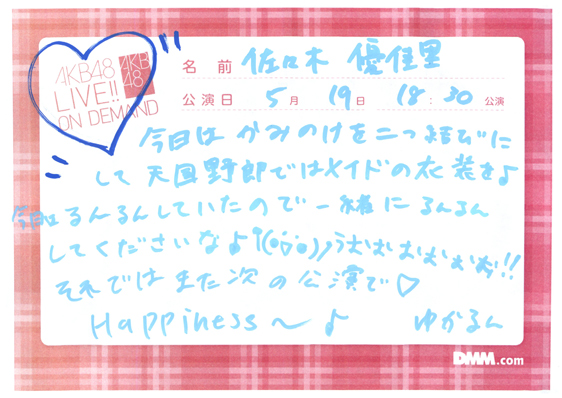 AKB48
LIVE!!
ON DEMAND
AKB
48
名 前 佐々木 優佳里
公演日 5月 19日 18:30 公演
今日は かみのけを二つ結びに
して 天国野郎ではメイドの衣装を♪
今日は るんるんしていたので一緒に るんるん
してくださいなよ
うおおおおおお!!
それでは また次の公演で♡
Happiness〜♪ ゆかるん
DMM.com